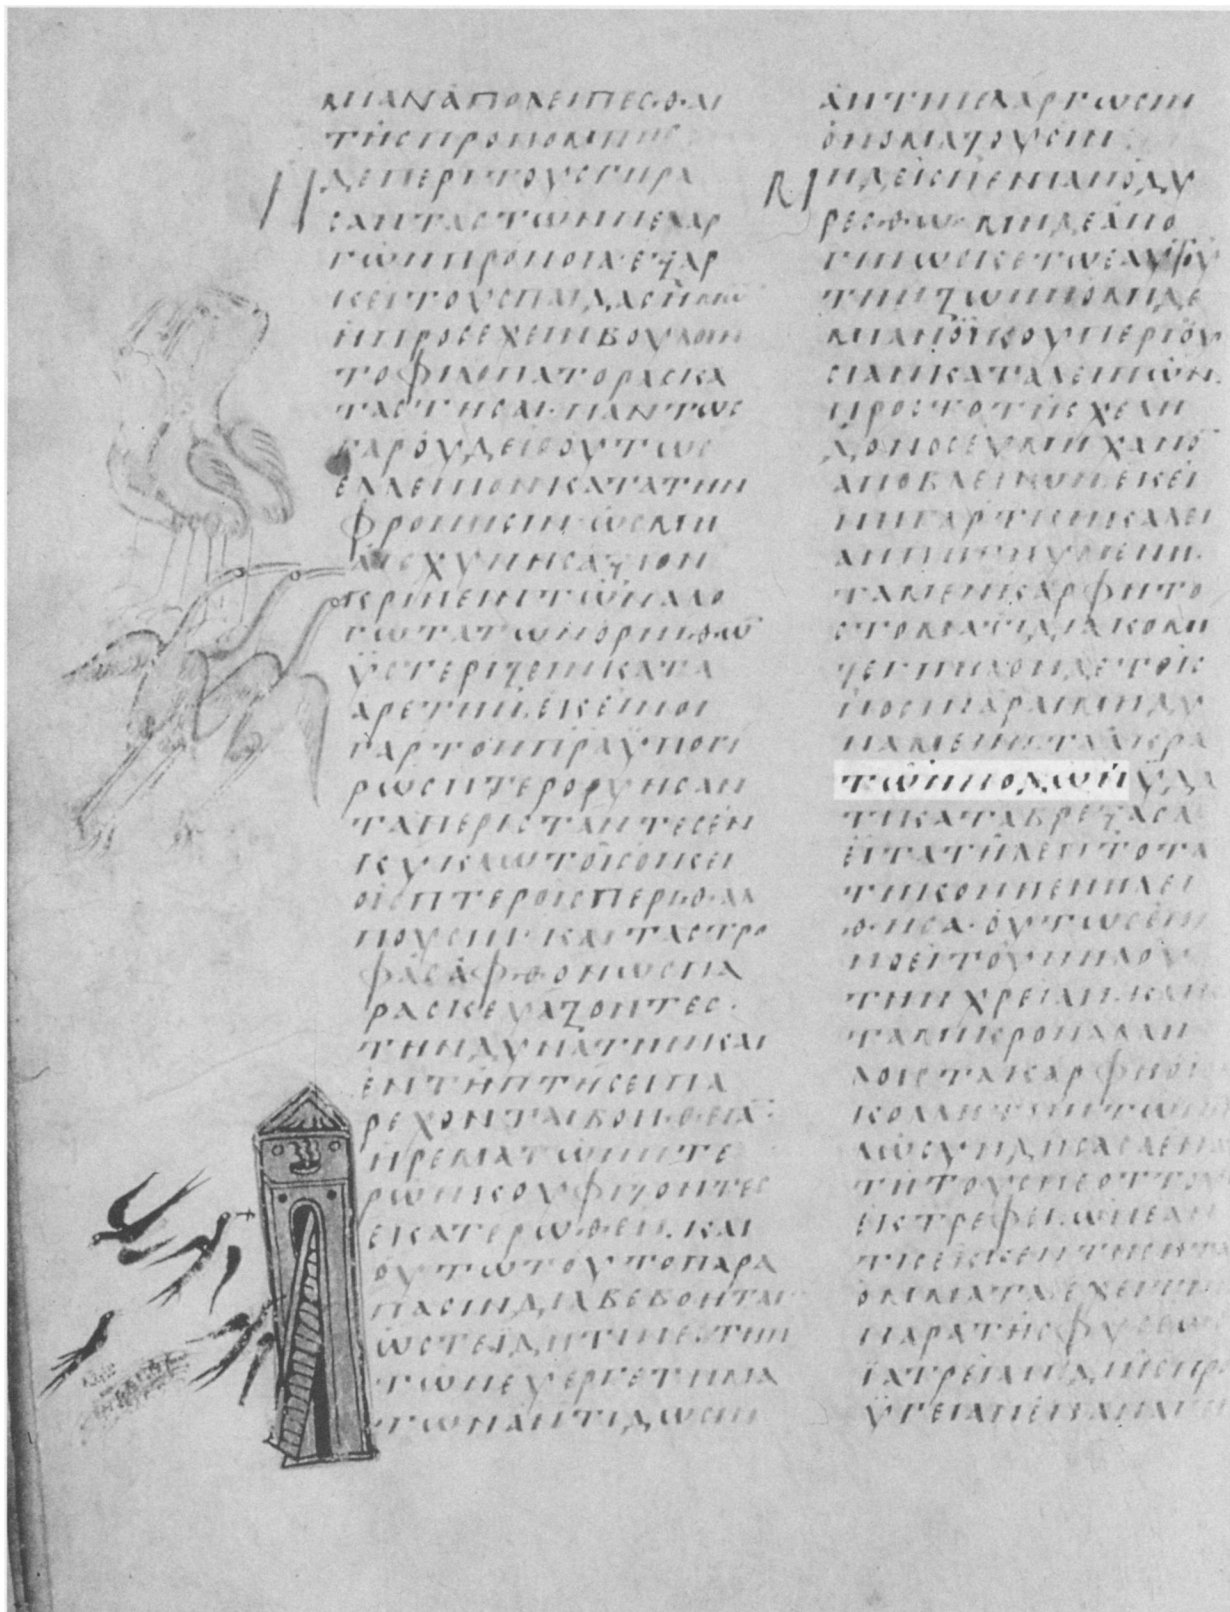 ΜΙΑΝ ΑΠΟΛΕΙΠΕΣΘΑΙ
ΤΗΣ ΠΡΟΠΟΜΠΗΣ
Η ΔΕ ΠΕΡΙ ΤΟΥΣ ΓΗΡΑ
ΣΑΝΤΑΣ ΤΩΝ ΠΕΛΑΡ
ΓΩΝ ΠΡΟΝΟΙΑ· ΕΞΑΡ
ΚΕΙ ΤΟΥΣ ΠΑΙΔΑΣ ΗΜΩ̅
ΗΠΡΟΣΕΧΕΙΝ ΒΟΥΛΟΙΝ
ΤΟ ΦΙΛΟΠΑΤΟΡΑΣ ΚΑ
ΤΑΣΤΗΣΑΙ· ΠΑΝΤΩΣ
ΓΑΡ ΟΥΔΕΙΣ ΟΥΤΩΣ
ΕΛΛΕΙΠΩΝ ΚΑΤΑ ΤΗΝ
ΦΡΟΝΗΣΙΝ· ΩΣ ΜΗ
ΑΙΣΧΥΝΗΣ ΑΞΙΟΝ
ΚΡΙΝΕΙΝ ΤΩΝ ΑΛΟ
ΓΩΤΑΤΩΝ ΟΡΝΙΘΩ̅
ΫΣΤΕΡΙΖΕΙΝ ΚΑΤΑ
ΑΡΕΤΗΝ. ΕΚΕΙΝΟΙ
ΓΑΡ ΤΟΝ ΠΡΑ ΫΠΟ ΓΗ
ΡΩΣ ΠΤΕΡΟΡΥΗΣΑΝ
ΤΑ ΠΕΡΙΣΤΑΝΤΕΣ ΕΝ
ΚΥΚΛΩ ΤΟΙΣ ΟΙΚΕΙ
ΟΙΣ ΠΤΕΡΟΙΣ ΠΕΡΙΘΑΛ
ΠΟΥΣΙΝ· ΚΑΙ ΤΑΣ ΤΡΟ
ΦΑΣ ΑΦΘΟΝΩΣ ΠΑ
ΡΑΣΚΕΥΑΖΟΝΤΕΣ·
ΤΗΝ ΔΥΝΑΤΗΝ ΚΑΙ
ΕΝ ΤΗ ΠΤΗΣΕΙ ΠΑ
ΡΕΧΟΝΤΑΙ ΒΟΗΘΕΙΑ̅·
ΗΡΕΜΑ ΤΩ ΠΤΕ
ΡΩ ΚΟΥΦΙΖΟΝΤΕΣ
ΕΚΑΤΕΡΩΘΕΝ. ΚΑΙ
ΟΥΤΩ ΤΟΥΤΟ ΠΑΡΑ
ΠΑΣΙΝ ΔΙΑΒΕΒΟΗΤΑΙ
ΩΣΤΕ ΙΔΗ ΤΙΝΕΣ ΤΗΝ
ΤΩΝ ΕΥΕΡΓΕΤΗΜΑ
ΤΩΝ ΑΝΤΙΔΩΣΙΝ
ΑΝΤΙΠΕΛΑΡΓΩΣΙΝ
ΟΝΟΜΑΖΟΥΣΙΝ·
ΜΗΔΕΙΣ ΠΕΝΙΑΝ ΟΔΥ
ΡΕΣΘΩ· ΜΗΔΕ ΑΠΟ
ΓΙΝΩΣΚΕΤΩ ΕΑΥΤΟΥ
ΤΗΝ ΖΩΗΝ Ο ΜΗΔΕ
ΜΙΑΝ ΟΪΚΟΥ ΠΕΡΙΟΥ
ΣΙΑΝ ΚΑΤΑΛΕΙΠΩΝ.
ΠΡΟΣ ΤΟ ΤΗΣ ΧΕΛΗ
ΔΟΝΟΣ ΕΥΜΗΧΑΝΟ̅
ΑΠΟΒΛΕΠΩΝ. ΕΚΕΙ
ΝΗ ΓΑΡ ΤΗΝ ΚΑΛΕΙ
ΑΝ ΠΗΓΝΥΜΕΝΗ.
ΤΑ ΜΕΝ ΚΑΡΦΗ ΤΟ
ΣΤΟΜΑΤΙ ΔΙΑΚΟΜΗ
ΖΕΙ ΠΗΛΟΝ ΔΕ ΤΟΙΣ
ΠΟΣΙΝ ΑΡΑΙ ΜΗ ΔΥ
ΝΑΜΕΝΗ ΤΑ ΑΚΡΑ
ΤΩΝ ΠΟΔΩΝ ΫΔΑ
ΤΙ ΚΑΤΑΒΡΕΞΑΣΑ
ΕΙΤΑ ΤΗ ΛΕΠΤΟΤΑ
ΤΗ ΚΟΝΗ ΕΝΗΛΕΙ
ΘΗΣΑ· ΟΥΤΩΣ ΕΠΙ
ΝΟΕΙ ΤΟΥ ΠΗΛΟΥ
ΤΗΝ ΧΡΕΙΑΝ. ΚΑΙ Κ
ΤΑ ΜΙΚΡΟΝ ΑΛΛΗ
ΛΟΙΣ ΤΑ ΚΑΡΦΗ ΟΙΟ
ΚΟΛΛΗ ΤΙΝΙ ΤΩ ΠΗ
ΛΩ ΣΥΝΔΗΣΑΣΑ ΕΝ
ΤΗ ΤΟΥΣ ΝΕΟΤΤΟΥ
ΕΚΤΡΕΦΕΙ. ΩΝ ΕΑΝ
ΤΙΣ ΕΚΚΕΝΤΗΣΗ ΤΑ
ΟΜΜΑΤΑ. ΕΧΕΙ ΤΙΝ
ΠΑΡΑ ΤΗΣ ΦΥΣΕΩΣ
ΪΑΤΡΕΙΑΝ ΔΙ ΗΣ ΠΡ
ΫΓΕΙΑΝ